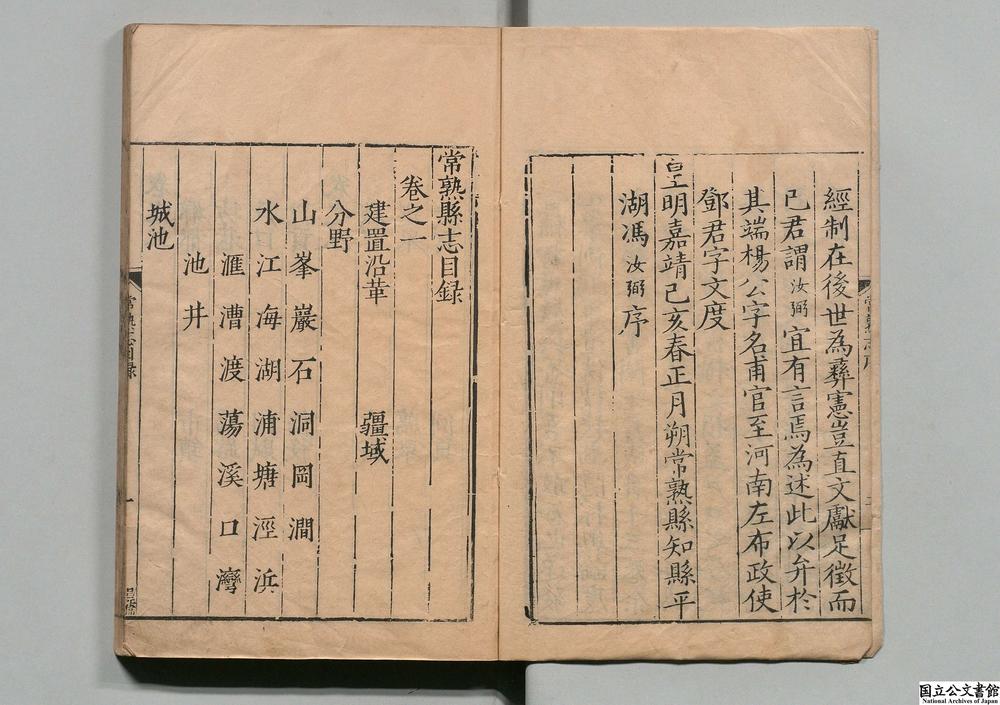 經制在後世為彞憲豈直文獻足徵而
已君謂汝弼宜有言焉為述此以弁於
其端楊公字名甫官至河南左布政使
鄧君字文度
皇明嘉靖己亥春正月朔常熟縣知縣平
湖馮汝弼序
常熟縣志目録
卷之一
建置沿革 疆域
分野
山峯巖石洞岡澗
水江海湖浦塘涇浜
滙漕渡蕩溪口灣
池井
城池
常熟志目録
一
国立公文書館
National Archives of Japan